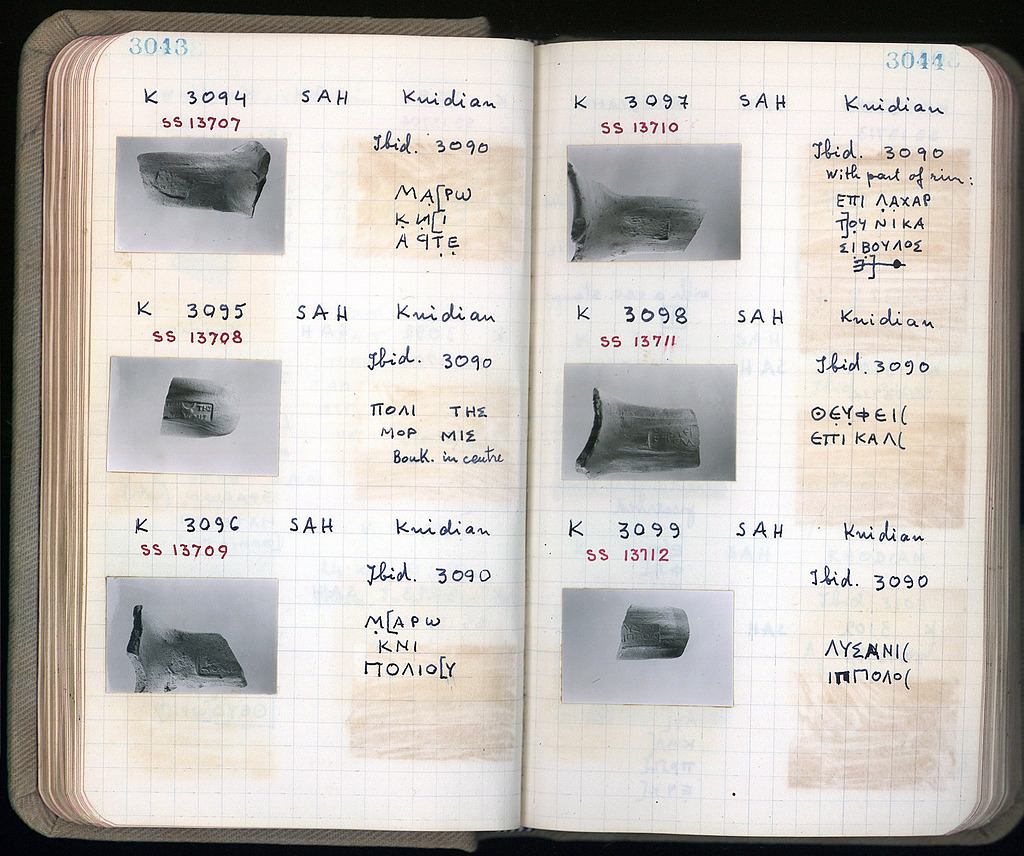 3043
K 3094 SAH Knidian
SS 13707
Ibid. 3090
ΜΑ[ΡΩ
ΚΝ[Ι
ΑϤΤΕ
K 3095 SAH Knidian
SS 13708
Ibid. 3090
ΠΟΛΙ ΤΗΣ
ΜΟΡ ΜΙΣ
Bouk. in centre
K 3096 SAH Knidian
SS 13709
Ibid. 3090
Μ[ΑΡΩ
ΚΝΙ
ΠΟΛΙΟ[Υ
3044
K 3097 SAH Knidian
SS 13710
Ibid. 3090
with part of rim:
ΕΠΙ ΛΑΧΑΡ
Τ]ΟΥ ΝΙΚΑ
ΣΙΒΟΥΛΟΣ
K 3098 SAH Knidian
SS 13711
Ibid. 3090
ΘΕΥΦΕΙ(
ΕΠΙ ΚΑΛ(
K 3099 SAH Knidian
SS 13712
Ibid. 3090
ΛΥΣΑΝΙ(
ΙΠΠΟΛΟ(